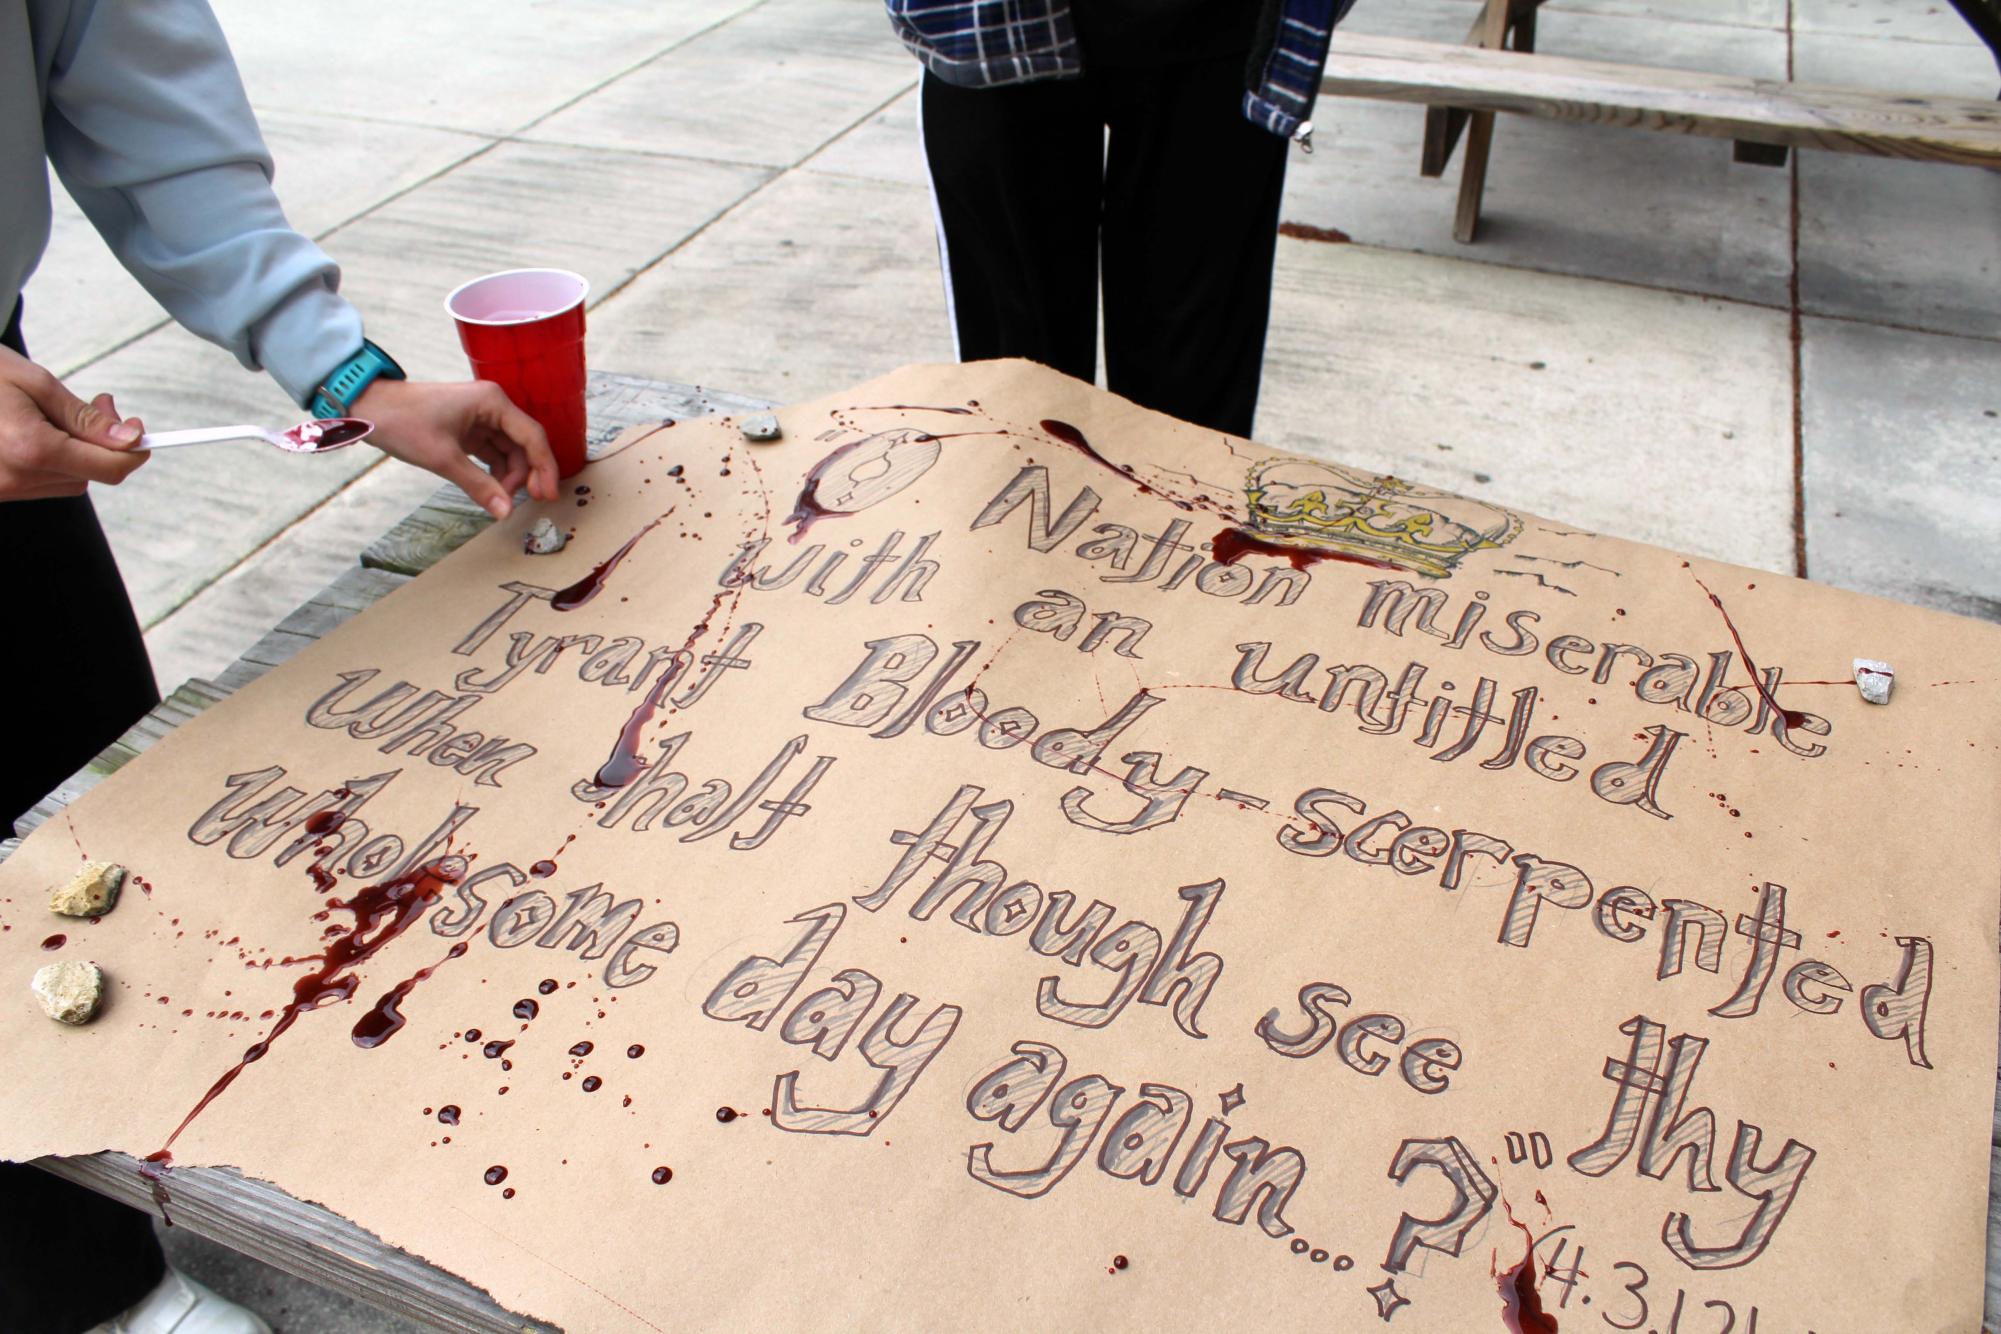 "O Nation miserable
with an untitled
Tyrant Bloody-scerpented
When shalt though see thy
Wholesome day again...?"
4.3.121